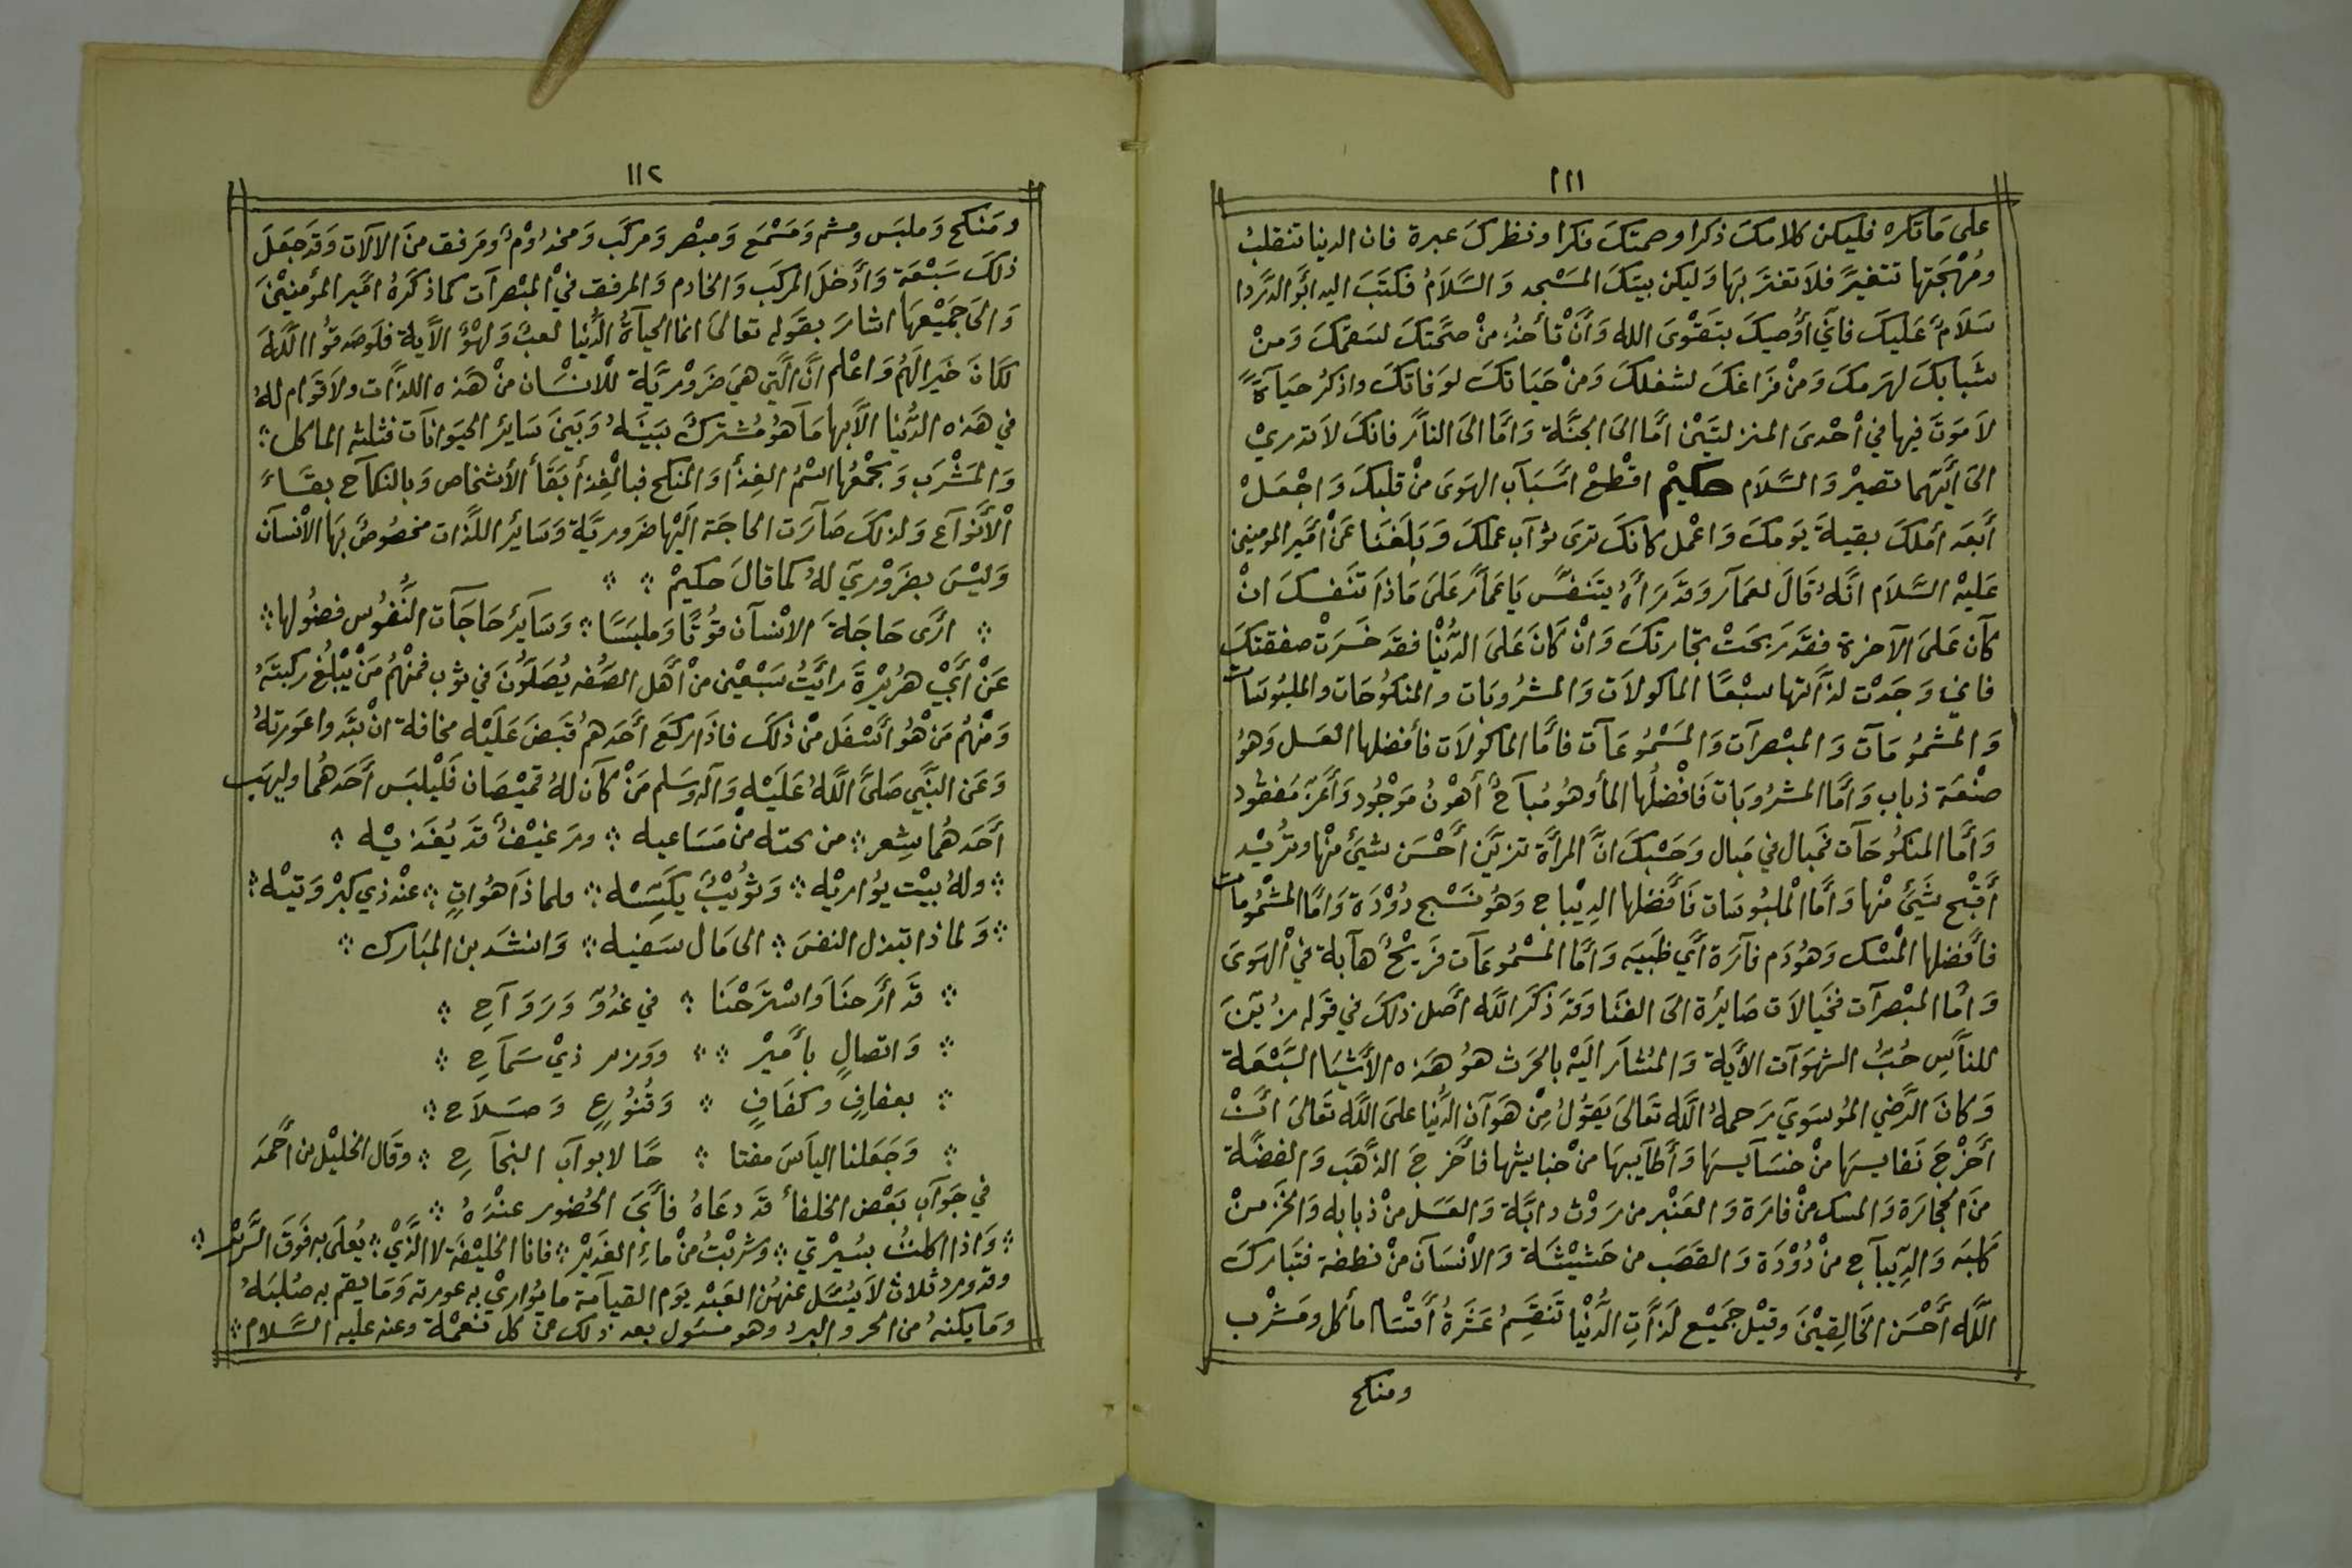 ١١١
على مَا تكره فليكن كلامكَ ذكرا وصمتكَ فكرا ونظركَ عبرة فان الدنيا تتقلبُ
ومُهْجَتها تتغيرً فلاَ تغترَ بهَا وَليكن بيتكَ المسْجد وَالسَّلاَمُ فكتَبَ اليه ابَُو الدَّردا
سَلاَمٌ عَليكَ فاني أوُصيكَ بتَقْوىَ الله وَأنْ تأخذُ منْ صحَّتكَ لسَقمكَ وَمنْ
شَبابكَ لهرَمكَ وَمنْ فرَاغكَ لشغلكَ وَمنْ حَيَاتكَ لوَفاتكَ واذكرُ حيَاَةً
لاَ موَتَ فيها في أحْدىَ المنزلتَيْن أمَّا الىَ الجنَّة وَامَّا الىَ النارِ فانكَ لاَ تدريْ
الىَ أيَّتهما تصيرْ وَالسَّلاَم حكيْم اقْطعْ أسْبَاَبَ الهَوىَ منْ قلبكَ وَاجْعَلْ
أبَعَد أملكَ بقيةَ يَومكَ وَاعْمل كانكَ ترىَ ثوَاَب عملكَ وَبَلَغنَا عَنْ أميَر المومنين
عَليْه السَّلاَم انَّهُ قالَ لعمَاَر وَقدَ رَاهُ يتنَفسًّ يَا عَماَّرُ علىَ مَاذاَ تنَفسكَ انْ
كاَن عَلىَ الآخرة فقدَ رَبحَتْ تجارتكَ وَانْ كانَ عَلىَ الدُّنْيَا فقدَ خسَرَتْ صفقتكَ
فاني وَجَدْت لذاَّتها سبْعًا الماكولاَت وَالمشرُوبات والمنكوُحَات والملبُوسَات
وَالمشمُومَاَت وَالمبْصرَاَت وَالمسْمُوعَاَت فأمَّا الماكوُلاَت فأفضلها العسَل وَهوُ
صنْعَة ذباب وَامَّا المشرُوبَات فَافْضلُها المأ وهُوَ مُباَحٌ أهْونُ مَوْجُود وَأعَزّ مَفقود
وَأمَّا المنكوُحَاَت فمبَال في مَبال وَحَسْبكَ انَّ المرأَة تزيّنَ أحْسَن شيَئ منْها وتُريْد
أقبْح شَيَئ منْها وَأمَّا الْملبُوسَات فَأفضَلها الدِيْباج وَهُوَ نسَْج دُوْدَة وَامَّا المشْمُومَات
فأفضلها المْسْك وَهُودَم فأرَة أي ظَبيَه وَأمَّا المسْمُوعَاَت فَريْحٌ هاَبة في الْهوَىَ
وَامَّا المبْصرَات فخيَالاَت صَايرَة الىَ الفنَا وَقدَ ذكرَ اللَّه أصَل ذلكَ في قوَله زُيّنَ
للناَّسِ حُبُّ الشهَوَات الأيَة وَالمُشاَر اليَهْ بالحَرث هوُ هَذه الأشْيَا السَّبْعَة
وَكانَ الرَّضي المُوسَويَ رَحمهُ اللَّه تعَالىَ يَقوُلُ مِنْ هوَاَن الدُّنيا علىَ اللَّه تعَالىَ انْ
أخْرَجَ نفايسهَا منْ خسَآيسهَا وَأطاَيبهَا منْ خبايثها فأخَرجَ الذَّهَب وَالفضَّة
منَ الحجَارَة وَالمسك منْ فارَة وَالعَنْبر من رَوْث دابَّة وَالعسَل منْ ذبابه وَالخزَ منْ
كلبَه وَالدِّيباَج منْ دُوْدَة وَالقصَب من حَشيْشَة وَالاْنسَاَن منْ نطفة فتبَاركَ
اللَّه أحْسَن الخَالِقيْنَ وقيْل جَميْع لذاَّتِ الدُّنْيَا تَنقَسِمُ عَشرَةُ أقسْاَم مأكل ومَشْرب
ومنكح
١١٢
ومَنكح وَملبَس ومشم وَمَسْمَع وَمبْصر وَمَركَب وَمخدُوْمٌ وَمَرفق منَ الآلاَت وَقدَ جَعَلَ
ذلكَ سَبْعَة وَأدَْخلَ المَركَب وَالخادم وَالمرفق فيْ المبْصرَاَت كماذ كرَهُ امَير المؤمنيْنَ
وَالىَ جَميْعهَا اشارَ بقَوله تعالىَ انما الحيَاَةُ الدُّنيا لعبٌ وَلهْوٌ الاَيةِ فلوَصَدقوُا اللَّهَ
لكاَنَ خَيرالَهُمُ وَاعْلم انَّ الَّتي هيَ ضَرُوْريَّة للْانسْاَن منْ هَذه اللذاَّت ولاَ قوَام لهُ
في هَذه الدُّنيا الاَّبها مَاَ هوُ مُشْتركٌ بيَنَهُ وَبَينَ سَايُر الحيَوانَات فثلثه الماكل
وَالمَشْرَب وَيجْمُعهَا اسْمُ الغِذأ وَالمنكح فبالْغِذأ بَقَأ الأشخاص وَبالنكاَح بقَاءَ
الْأنْوَاَع وَلذلكَ صَاَرَت الحاجَة الَيْها ضَروريَّة وَسَايُر اللَّذات مخصُوصٌ بهَا الاْنسَاَن
وَليْسَ بضَرُوْريَ لهُ كما قالَ حكيمْ
ارَى حَاجَةَ الاْنسَاَن قوُتًا وَملبَسًا وَسَاَيُر حَاجَاَت النُّفوُس فضُولها
عَنْ أبَيْ هرُيْرَةَ رايَْتُ سَبْعيْن منْ أهَل الصُفه يُصَلوُّنَ في ثوب فمنْهمُ مَنْ يَبْلغُ رَكبتَهُ
وَمنْهُم مَنْ هُوَ أسْفَل منْ ذلكَ فاذَا رَكعَ أحَدهمُ قبَضَ عَليْه مخافة انْ تبَدواعَورتهُ
وَعَن النبَّي صَلىَّ اللَّهُ عَليَْهِ وَآله وَسَلم مَنْ كاَن لهُ قمَيْصَان فليْلبَس أحَدهُما وليهَب
أحَدهُما شِعر من تحته منْ مَسَاعيه ورَغيْفٌ قدَ يُغذَيْه
ولهُ بيْت يُواريْه وَثوُيْبٌ يَكتسَه فلماذَا هَوُاني عنْد ذي كبرْ وَتيْه
وَلماذا تبذل النفسَ الى مَال سَفيه وَانشدَ بن المبَارك
قدَ ارََحنَا وَاسْترَحْنَا في غدُوّ وَرَوَاَحِ
وَاتصالٍ بأميْر ووزير ذيْ سَماَحِ
بعفافٍ وكفَافٍ وَقُنوُعٍ وَصَلاَح
وَجَعَلنا الياَسَ مفتا حًا لابواَب النجاَحِ وقاَل الخليْل بن أحَمدَ
في جَوَاَب بَعْض الخلفاأ قدَ دعَاهُ فأبَىَ الحُضور عنْدَهُ
وَاذا اكلتُ يسُيْرتي وشربْتُ منْ ماءِ الغدَيرْ فانا الخليْفَة لا الذَّيْ يُعلىَ به فَوَقَ السَّريْر
وقدورد ثلاث لاَ يسُئَل عنهُن العَبْد يوَم القياَمة ما يوُاريْ به عورته وَمَا يقم به صُلبَهُ
ومَا يكنهُ من الحر والبرد وهو مسئول بعد ذلك عن كل نعْمة وعنه عليه السَّلام